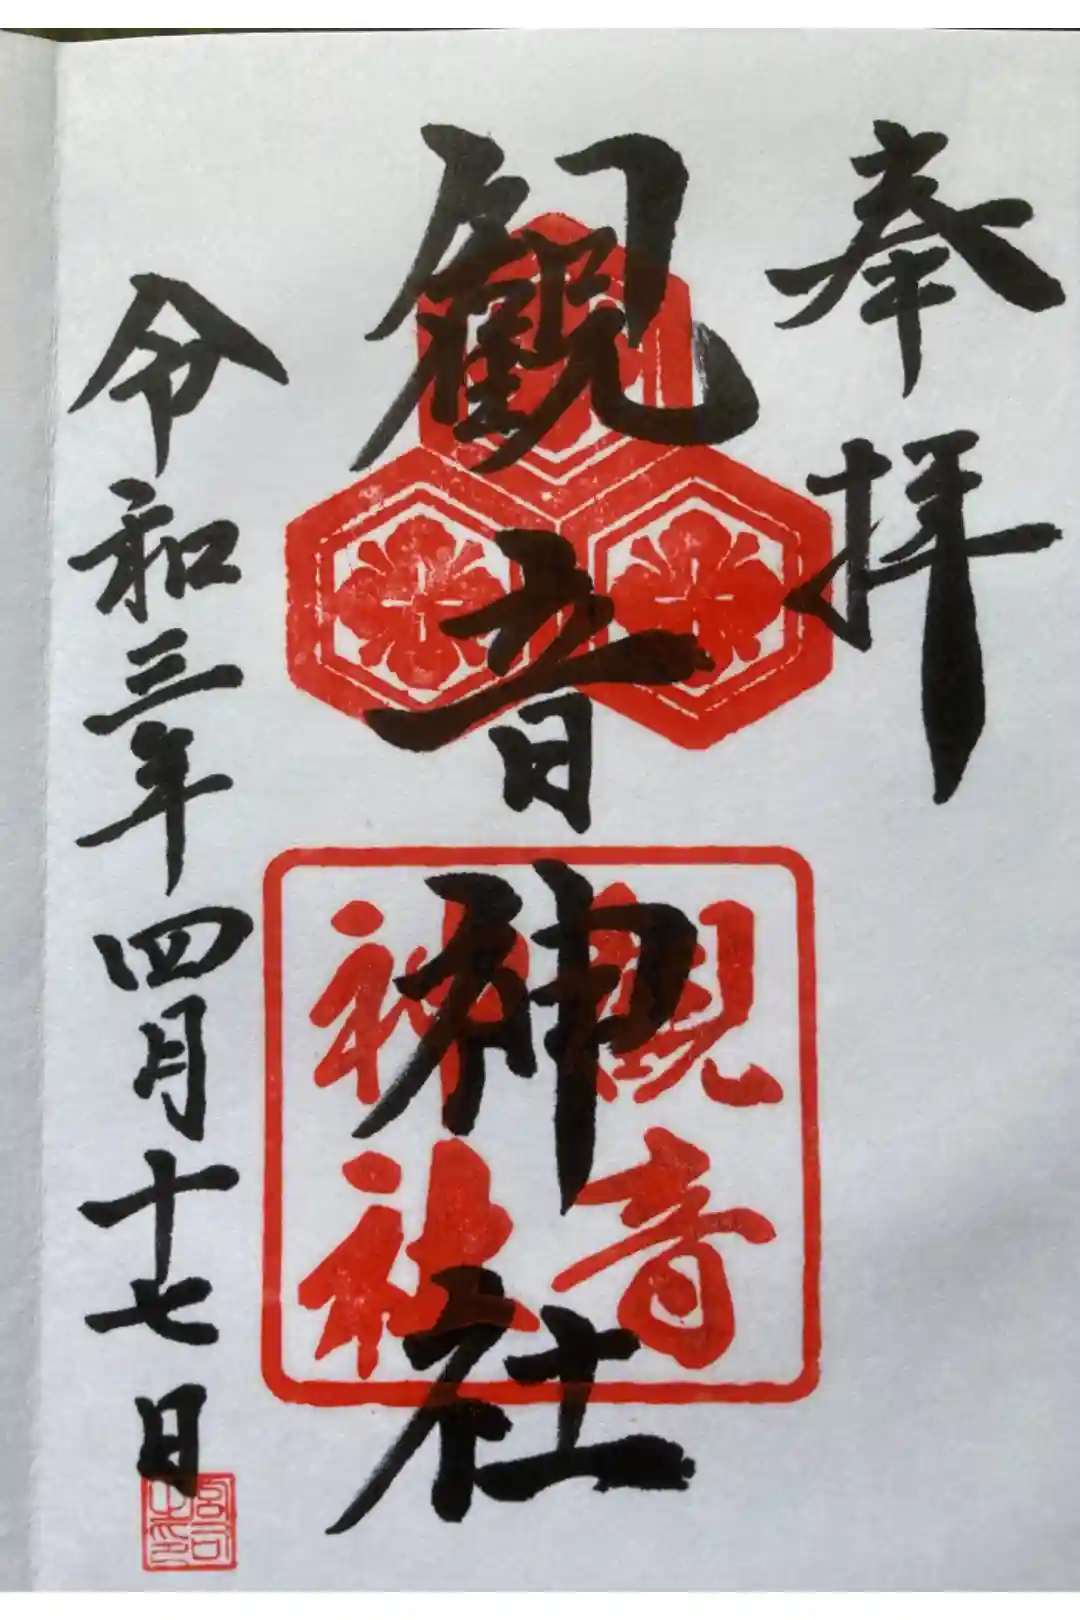 奉拝
観音神社
令和三年四月十七日
観音
神社
宮司
之印